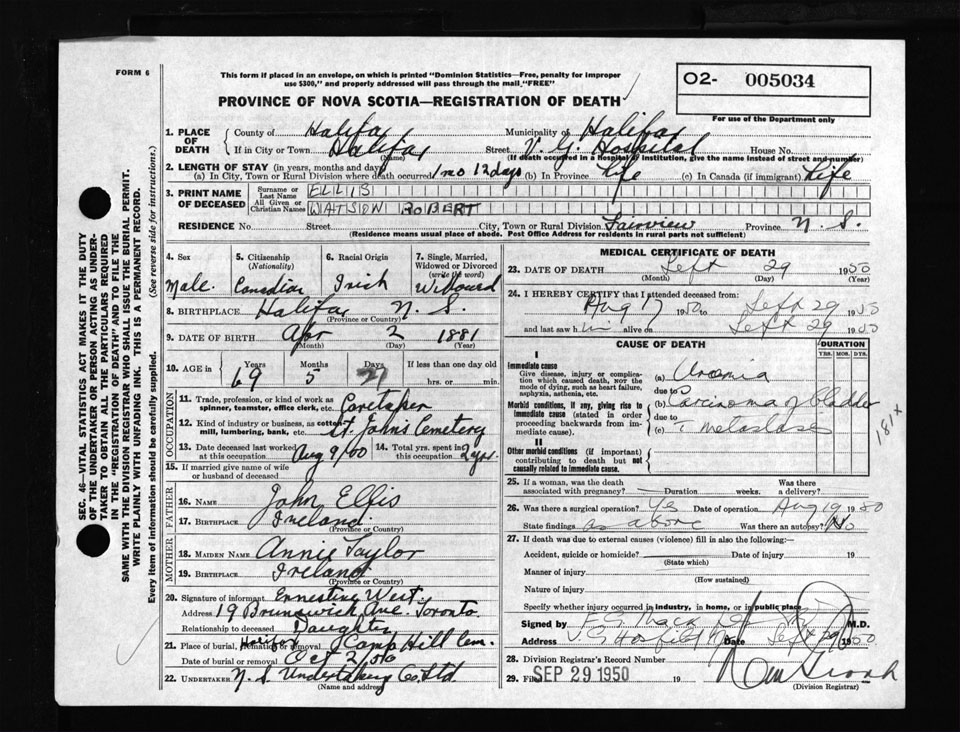 FORM 6
This form if placed in an envelope, on which is printed "Dominion Statistics—Free, penalty for improper
use $300," and properly addressed will pass through the mail "FREE"
O2- 005034
PROVINCE OF NOVA SCOTIA—REGISTRATION OF DEATH
For use of the Department only
1. PLACE OF DEATH
County of Halifax Municipality of Halifax
If in City or Town Halifax Street V. G. Hospital House No.
(Name) (If death occurred in a hospital or institution, give the name instead of street and number)
2. LENGTH OF STAY (in years, months and days)
(a) In City, Town or Rural Division where death occurred 1 mo 12 days (b) In Province Life (c) In Canada (if immigrant) Life
3. PRINT NAME OF DECEASED
Surname or Last Name ELLIS
All Given or Christian Names WATSON ROBERT
RESIDENCE No. Street City, Town or Rural Division Fairview Province N. S.
(Residence means usual place of abode. Post Office Address for residents in rural parts not sufficient)
4. Sex 5. Citizenship (Nationality) 6. Racial Origin 7. Single, Married, Widowed or Divorced (write the word)
Male Canadian Irish Widowed
8. BIRTHPLACE Halifax N. S.
(Province or Country)
9. DATE OF BIRTH Apr 2 1881
(Month) (Day) (Year)
10. AGE in Years Months Days If less than one day old
69 5 27 hrs. or min.
OCCUPATION
11. Trade, profession or kind of work as spinner, teamster, office clerk, etc. Caretaker
12. Kind of industry or business, as cotton mill, lumbering, bank, etc. St. John's Cemetery
13. Date deceased last worked at this occupation Aug 9/50 14. Total yrs. spent in this occupation 2 yrs.
15. If married give name of wife or husband of deceased
FATHER
16. NAME John Ellis
17. BIRTHPLACE Ireland
(Province or Country)
MOTHER
18. MAIDEN NAME Annie Taylor
19. BIRTHPLACE Ireland
(Province or Country)
20. Signature of informant Ernestine West
Address 19 Brunswick Ave. Toronto
Relationship to deceased Daughter
21. Place of burial, cremation or removal Halifax Camp Hill Cem.
Date of burial or removal Oct 2/50
22. UNDERTAKER N. S. Undertaking Co. Ltd
(Name and address)
MEDICAL CERTIFICATE OF DEATH
23. DATE OF DEATH Sept 29 1950
(Month) (Day) (Year)
24. I HEREBY CERTIFY that I attended deceased from:
Aug 17 1950 to Sept 29 1950
and last saw him alive on Sept 29 1950
CAUSE OF DEATH
DURATION
YRS. MOS. DYS.
I
Immediate cause
Give disease, injury or complication which caused death, not the mode of dying, such as heart failure, asphyxia, asthenia, etc.
(a) Uraemia
due to
Morbid conditions, if any, giving rise to immediate cause (stated in order proceeding backwards from immediate cause).
(b) Carcinoma of bladder
due to
(c) c̄ metastases
181x
II
Other morbid conditions (if important) contributing to death but not causally related to immediate cause.
25. If a woman, was the death associated with pregnancy? Duration weeks. Was there a delivery?
26. Was there a surgical operation? Yes Date of operation Aug 19 1950
State findings as above Was there an autopsy? No
27. If death was due to external causes (violence) fill in also the following:—
Accident, suicide or homicide? Date of injury 19
(State which)
Manner of injury
(How sustained)
Nature of injury
Specify whether injury occurred in industry, in home, or in public place
Signed by M.D.
Address V.G. Hospital Date Sept 29 1950
28. Division Registrar's Record Number
29. Filed SEP 29 1950 19
(Division Registrar)
SEC. 46—VITAL STATISTICS ACT MAKES IT THE DUTY
OF THE UNDERTAKER OR PERSON ACTING AS UNDERTAKER
TO OBTAIN ALL THE PARTICULARS REQUIRED
IN THE "REGISTRATION OF DEATH" AND TO FILE THE
SAME WITH THE DIVISION REGISTRAR WHO SHALL ISSUE THE BURIAL PERMIT.
WRITE PLAINLY WITH UNFADING INK. THIS IS A PERMANENT RECORD.
Every item of information should be carefully supplied. (See reverse side for instructions.)